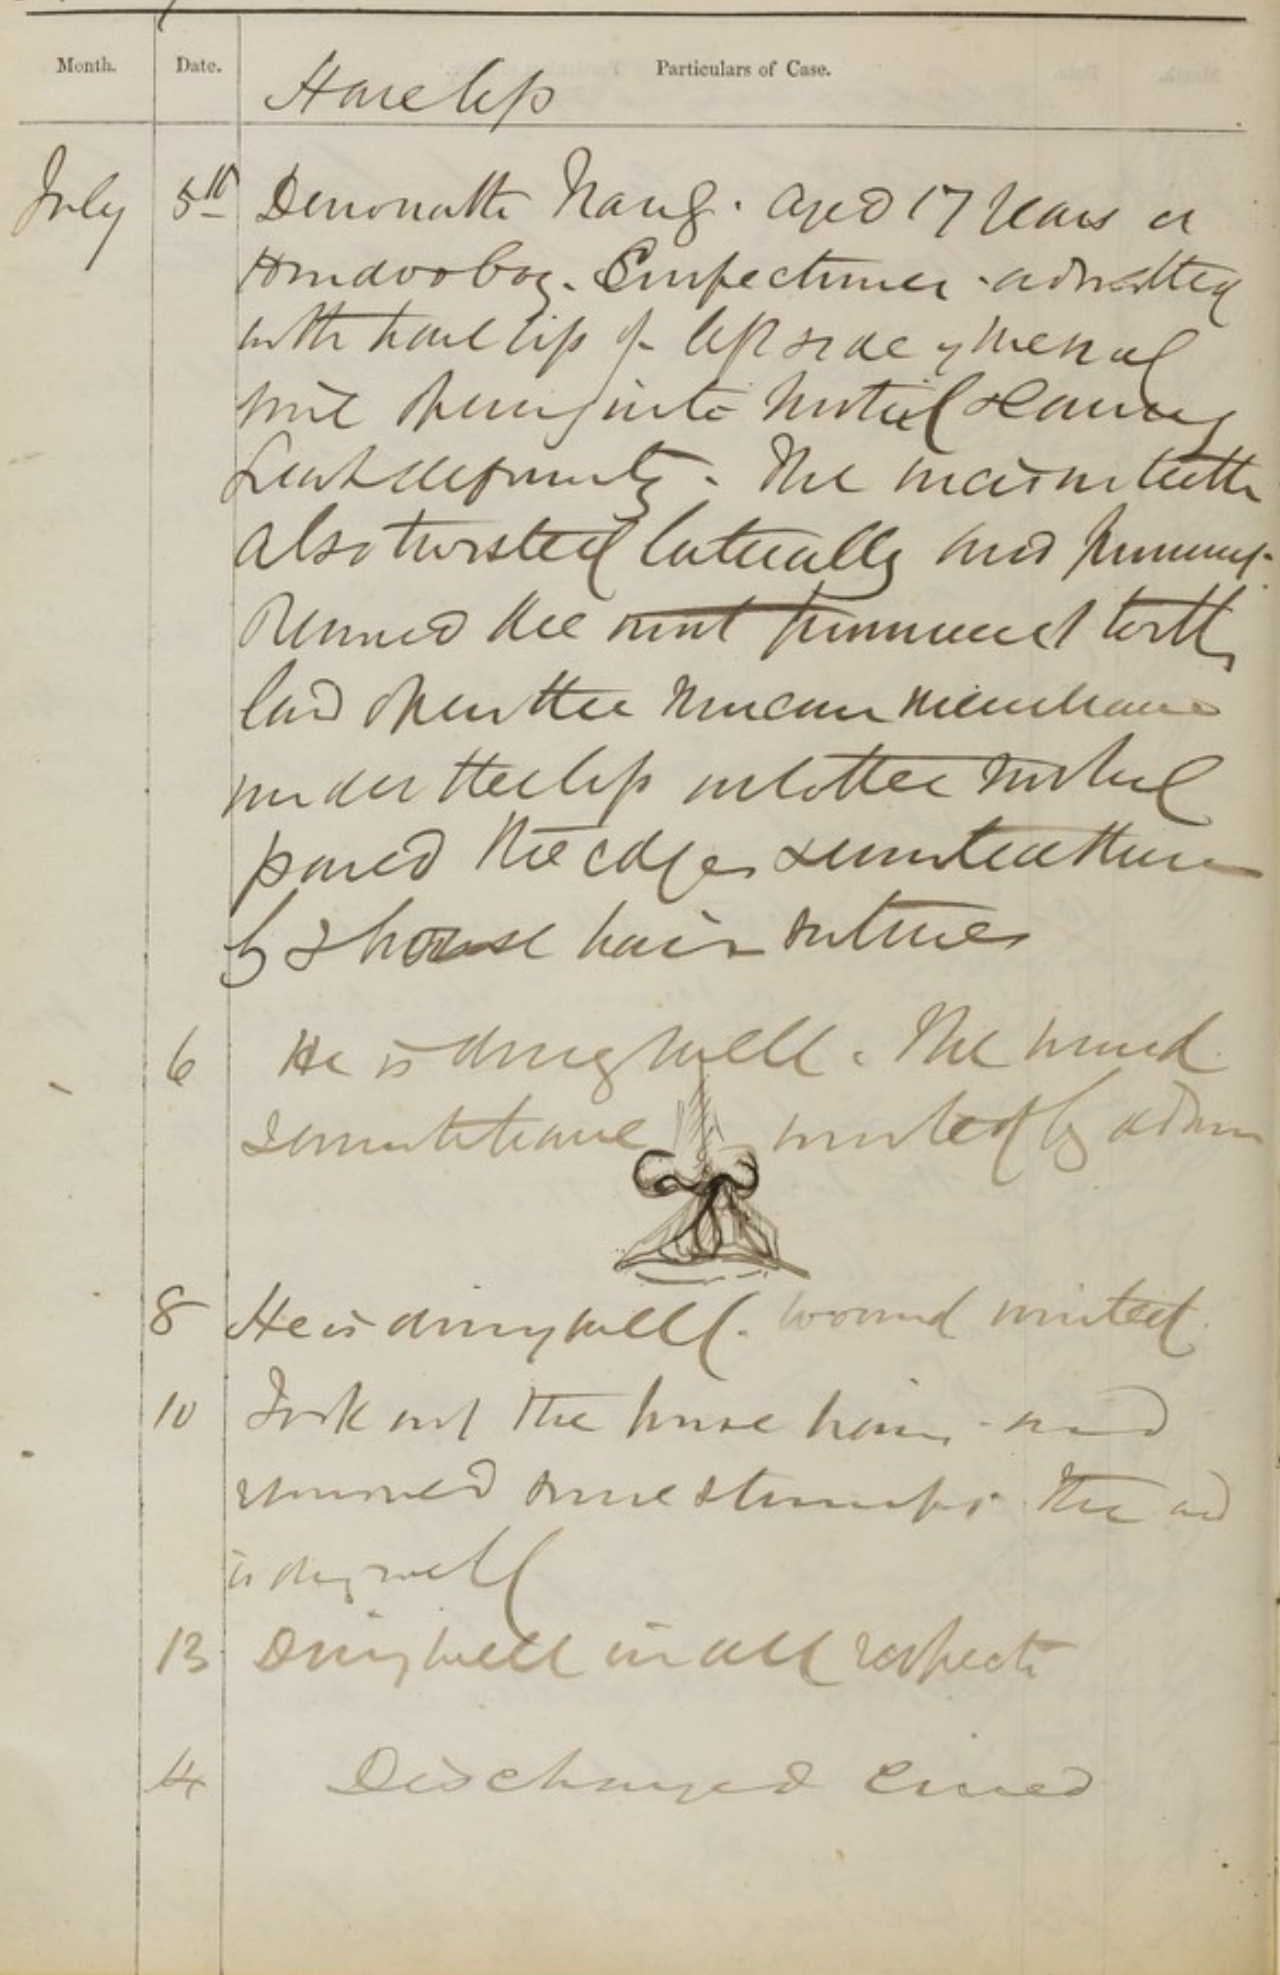 Month. Date. Particulars of Case.
Hare lip
July 5th Denonath Naug. aged 17 years a
Hindoo boy. Confectioner - admitted
with hare lip of left side of mesial
line opening into nostril & causing
great deformity. The incisor teeth
also twisted laterally and prominent.
Removed the most prominent tooth
laid open the mucous membrane
under the lip into the nostril
pared the edges & united them
by 2 horse hair sutures
6 He is doing well. The wound
seems to have united by adhn
8 He is doing well. wound united.
10 Took out the horse hair and
removed some stumps. The lad
is doing well
13 Doing well in all respects
14 Discharged Cured